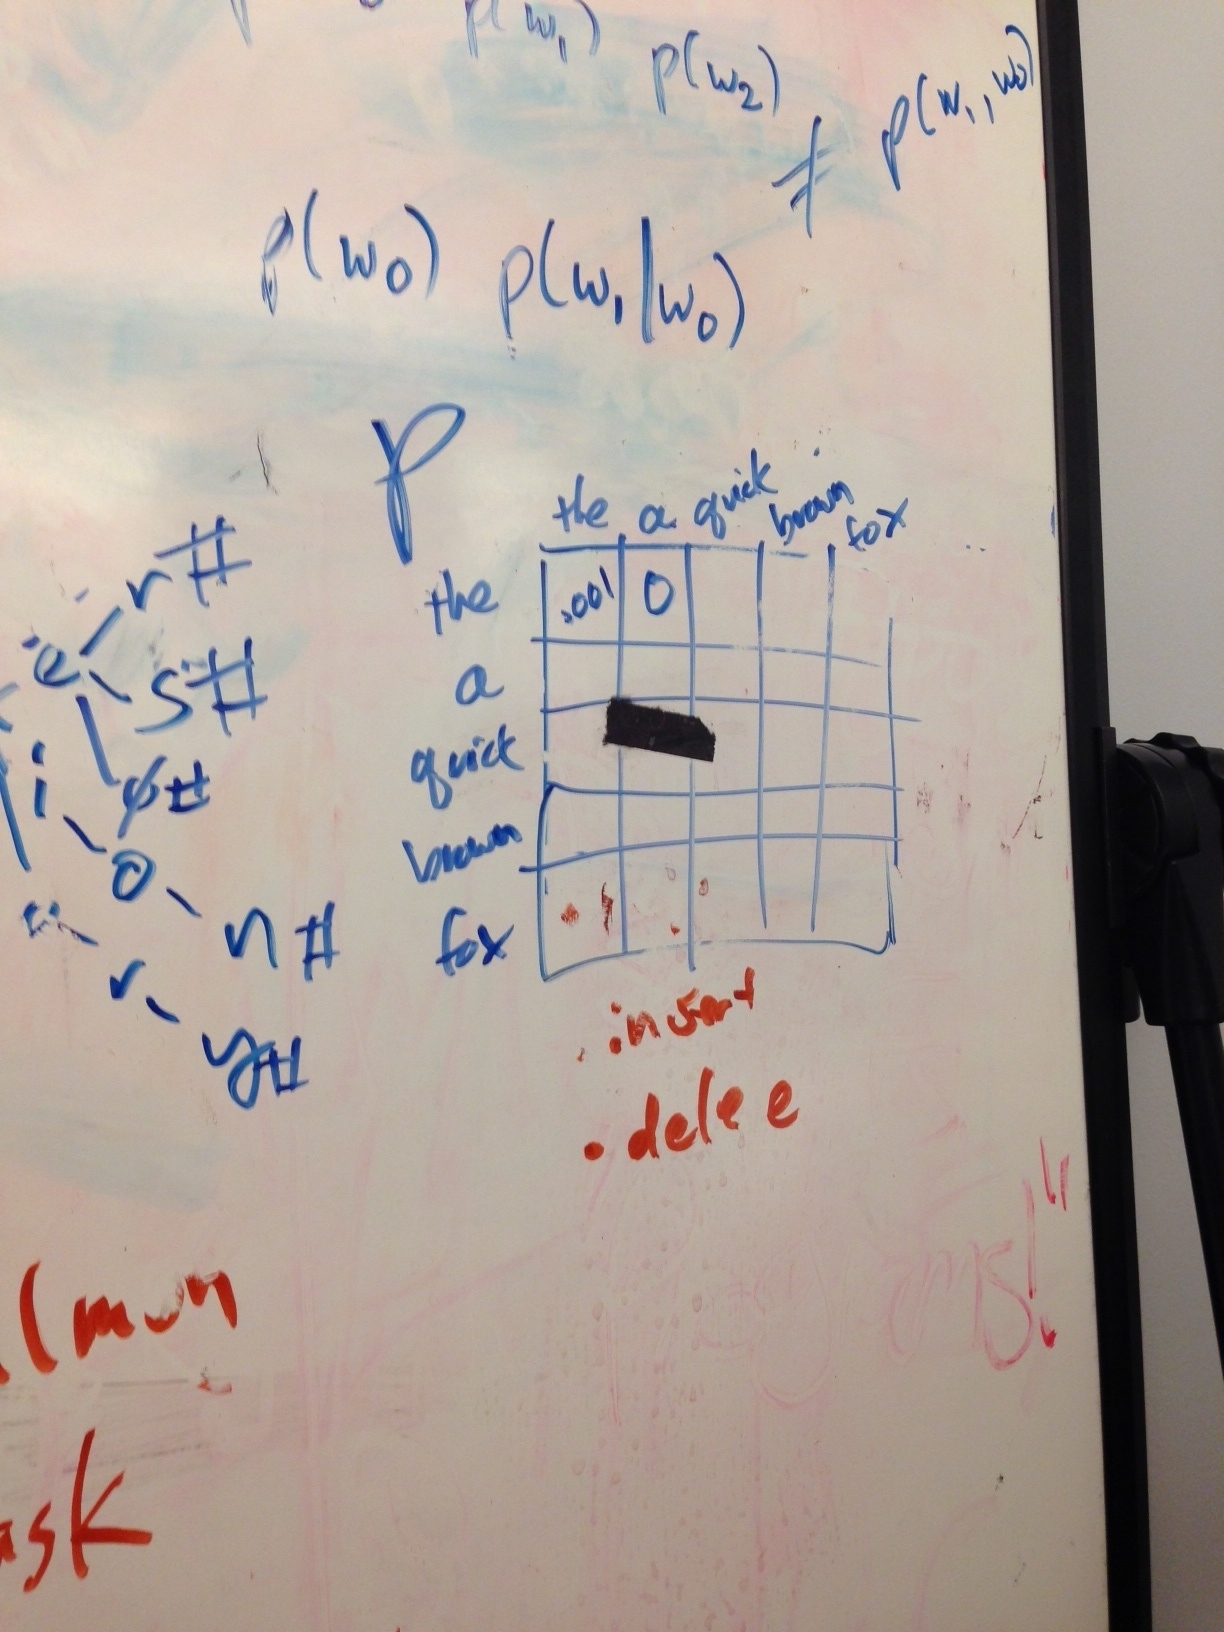 p(w₁)
p(w₂) ≠ p(w₁, w₀)
p(w₀) p(w₁|w₀)
P
the a quick brown fox
the .001 0
a
quick
brown
fox
r#
e
s#
i
ø#
o
n#
r
y#
. delee